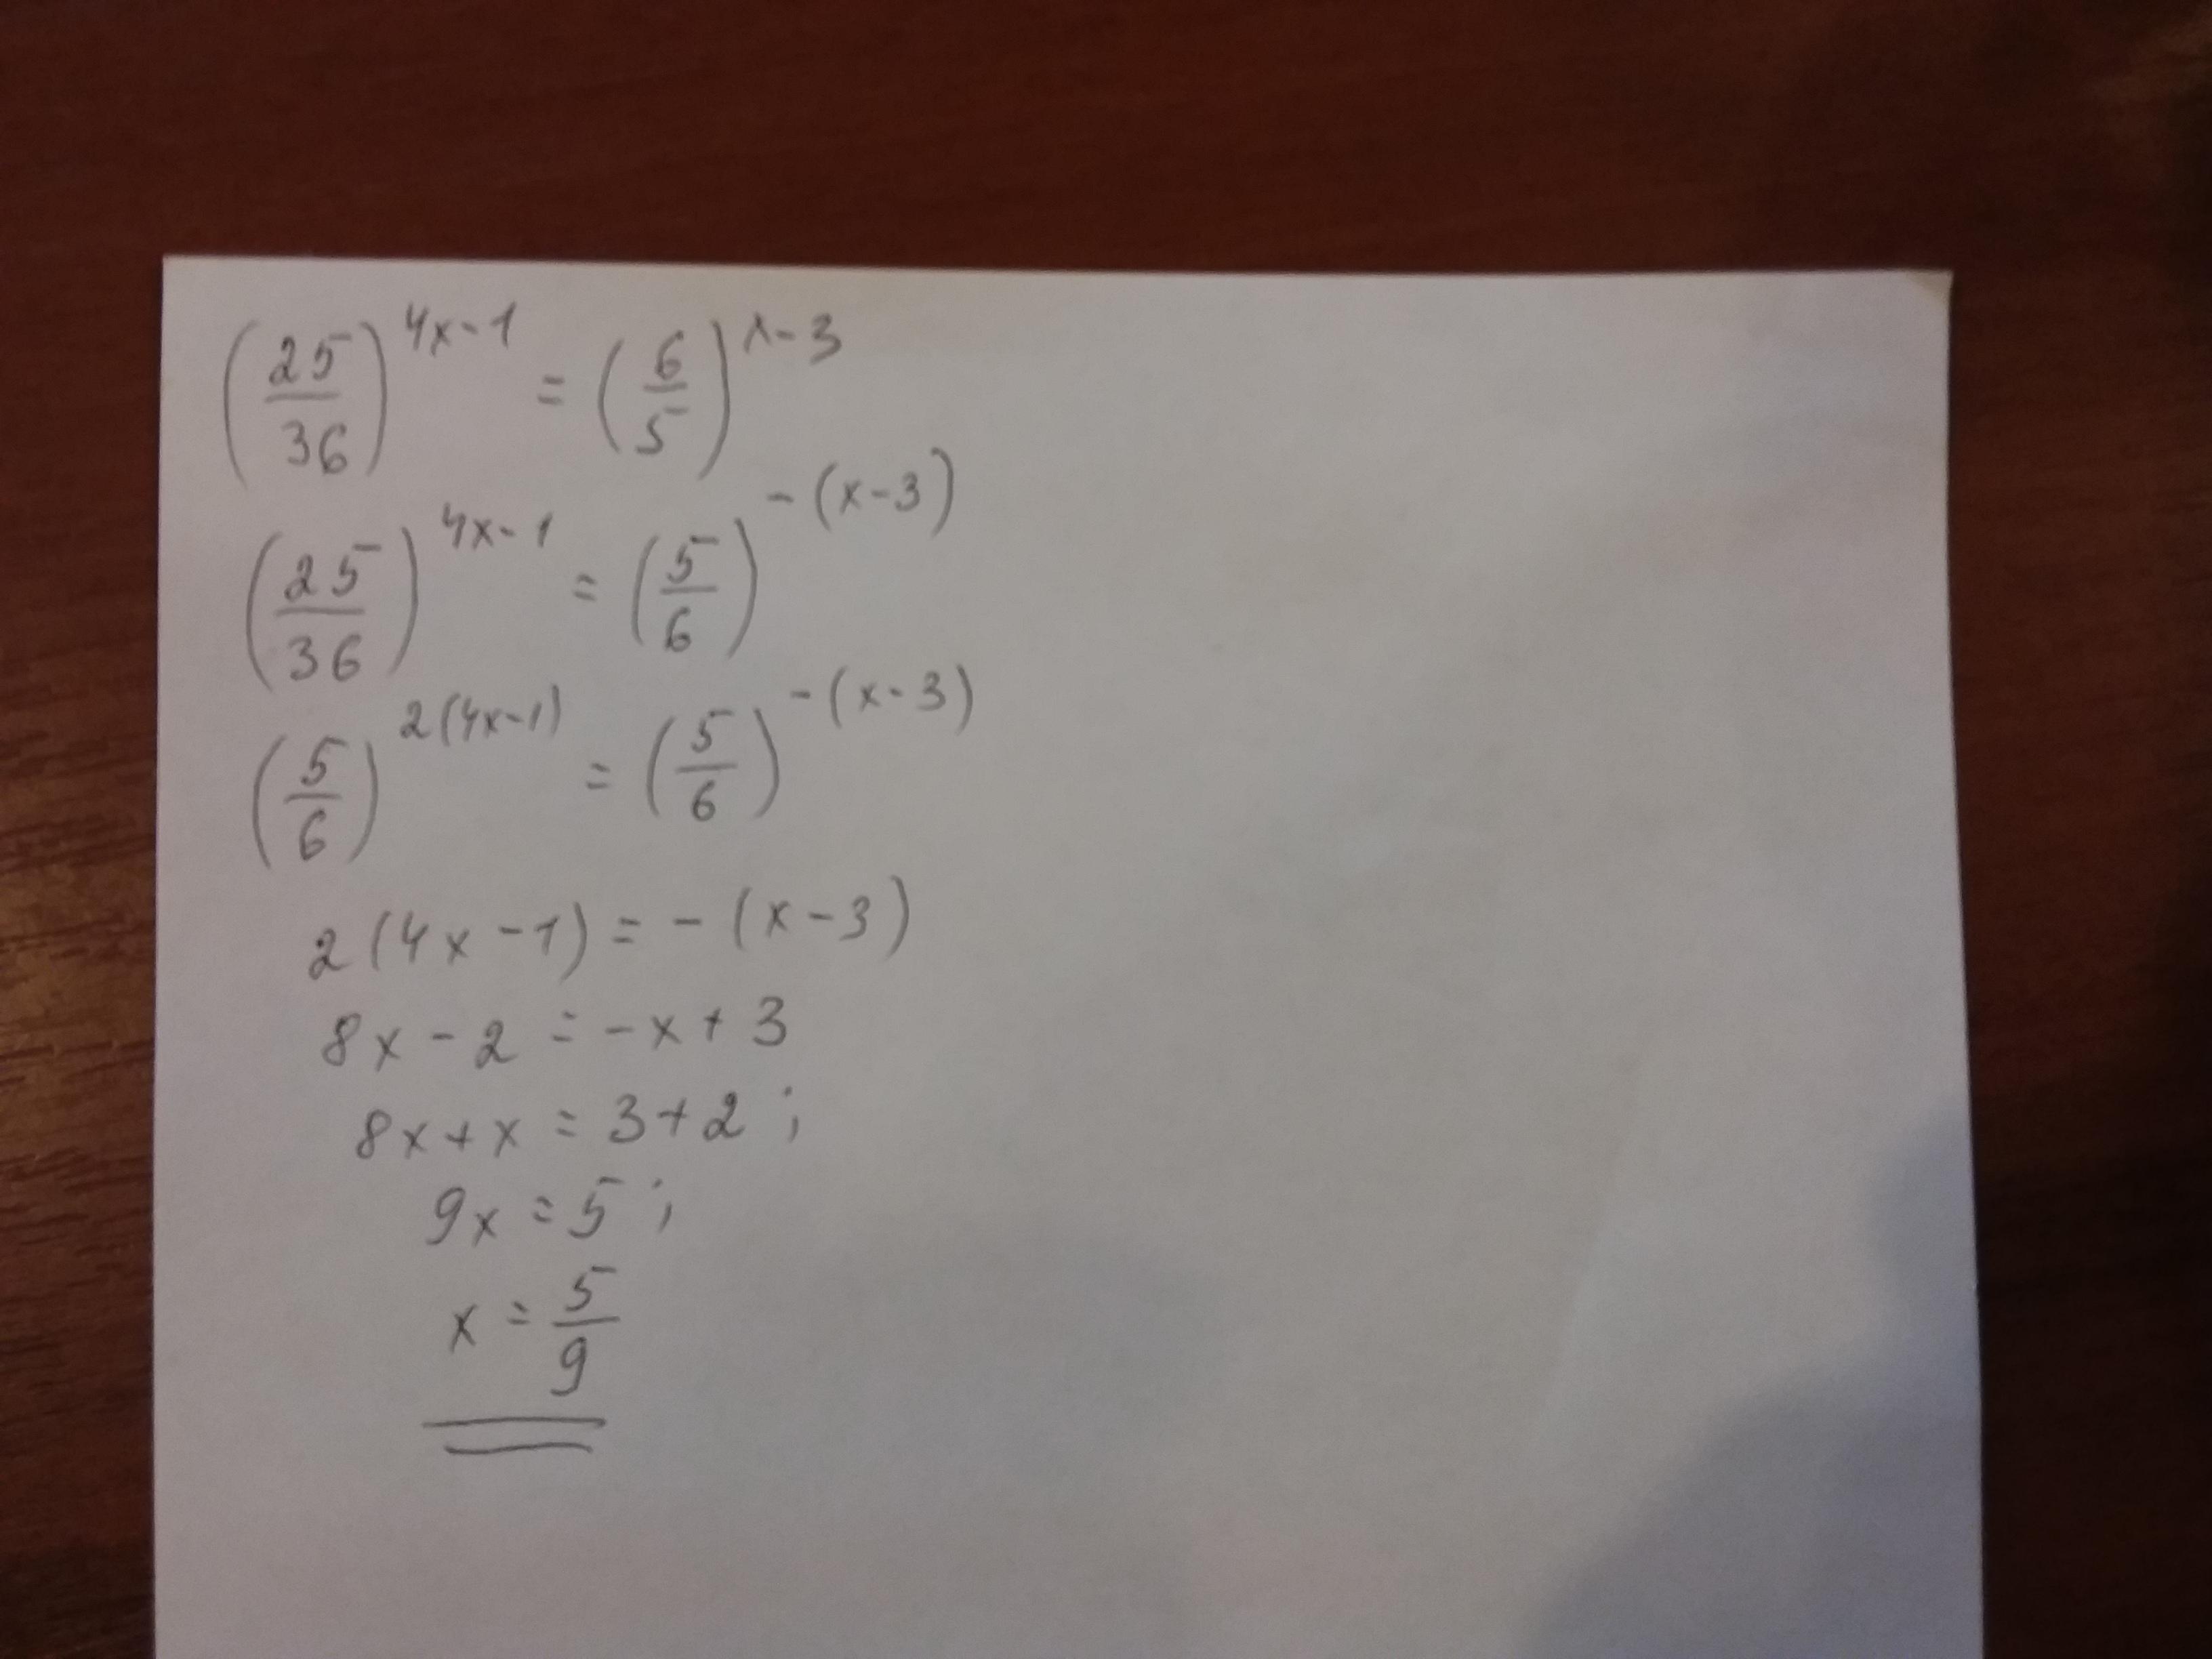 (25/36)^(4x-1) = (6/5)^(x-3)
(25/36)^(4x-1) = (5/6)^(-(x-3))
(5/6)^(2(4x-1)) = (5/6)^(-(x-3))
2(4x-1) = -(x-3)
8x-2 = -x+3
8x+x = 3+2;
9x = 5;
x = 5/9